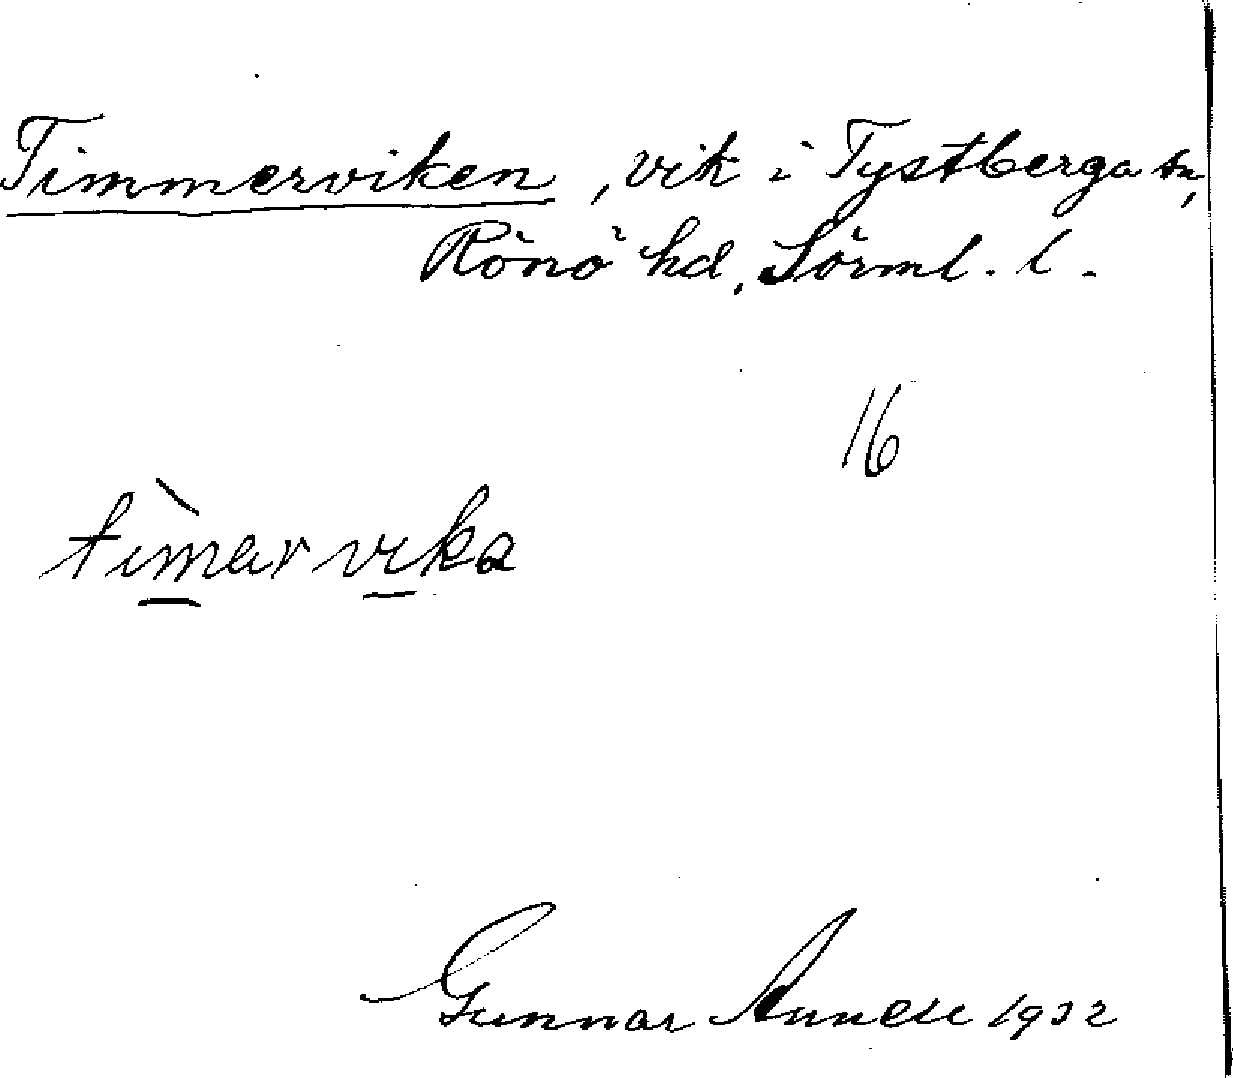 Timmerviken, vik i Tystberga sn,
Rönö hd, Sörml. l.
16
tìmarvika
Gunnar Annell 1932